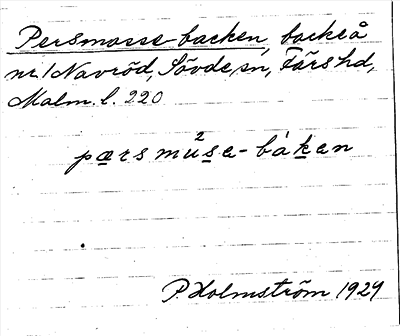 Persmosse-backen, backe å
nr. 1 Navröd, Sövde sn, Färs hd,
Malm. l. 220
pærs mu²sa-bàkan
P. Holmström 1929